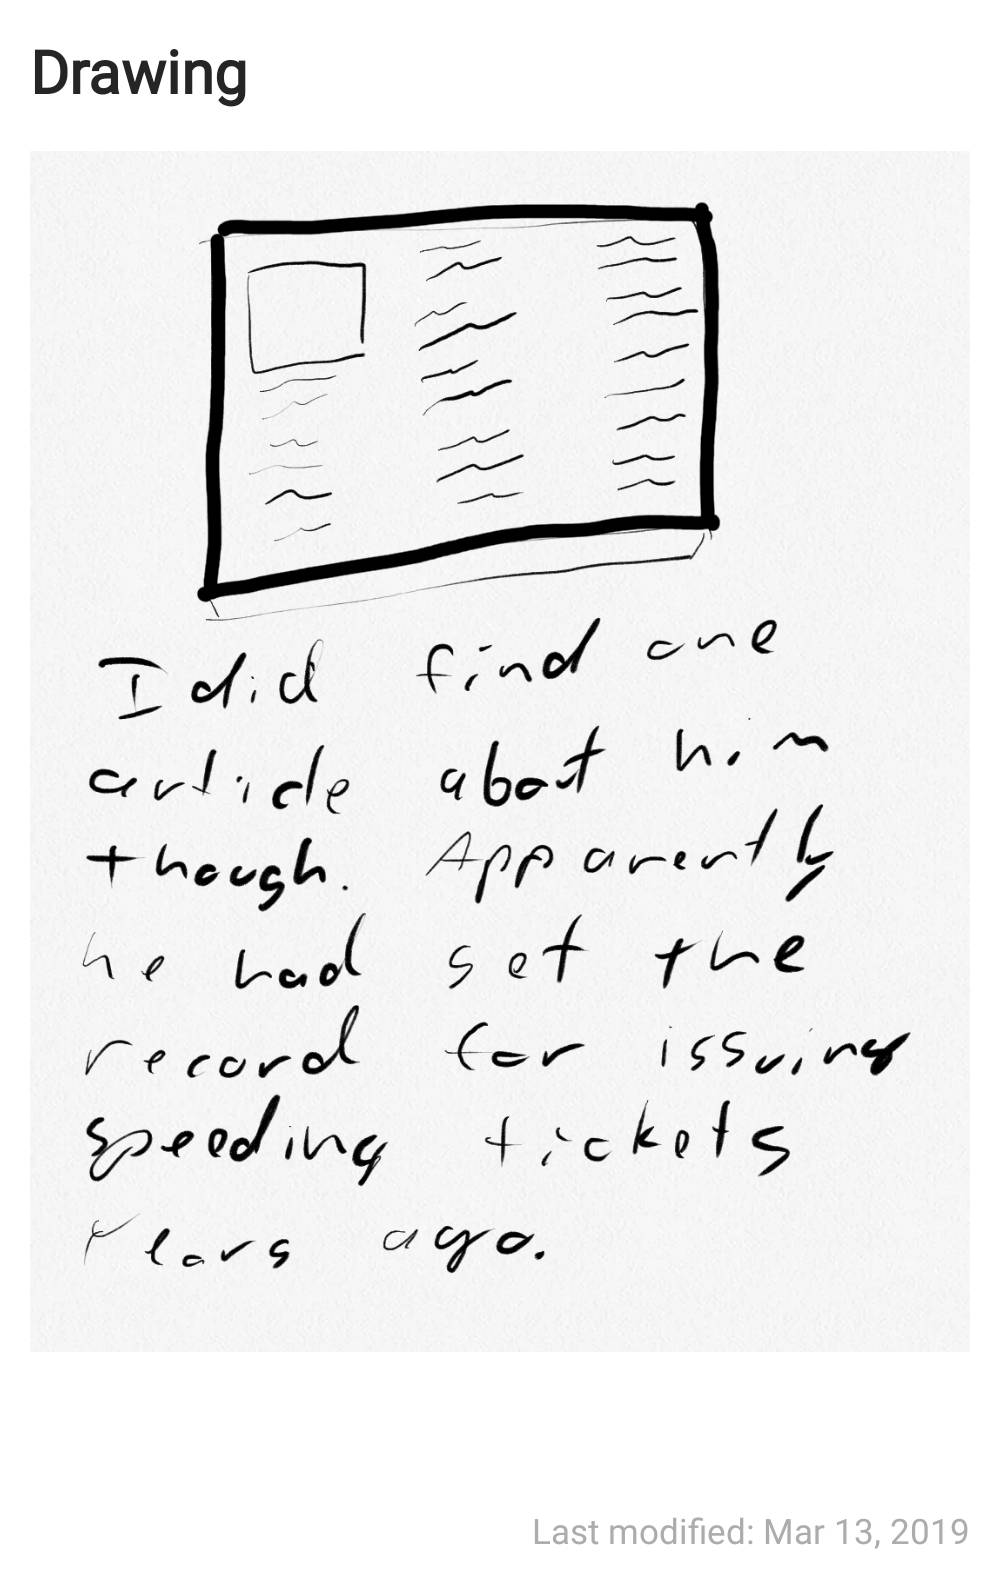 Drawing
I did find one
article about him
though. Apparently
he had set the
record for issuing
speeding tickets
years ago.
Last modified: Mar 13, 2019